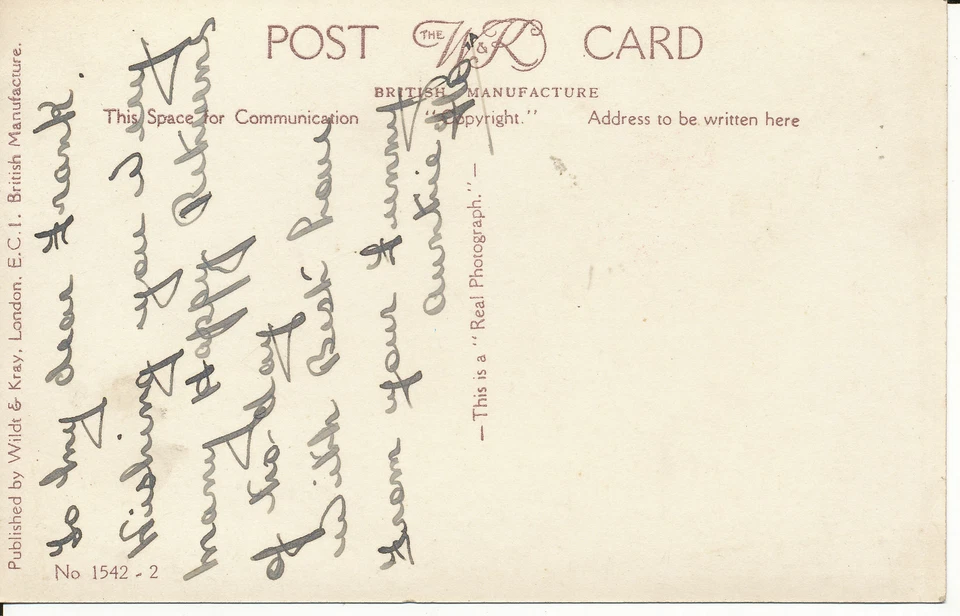 POST THE W & K CARD
BRITISH MANUFACTURE
This Space for Communication "Copyright." Address to be written here
Published by Wildt & Kray, London, E.C.1. British Manufacture.
To my dear Frank.
Wishing you very
many Happy Returns
of the day
with Best love
from your
Auntie
— This is a "Real Photograph." —
No 1542 - 2